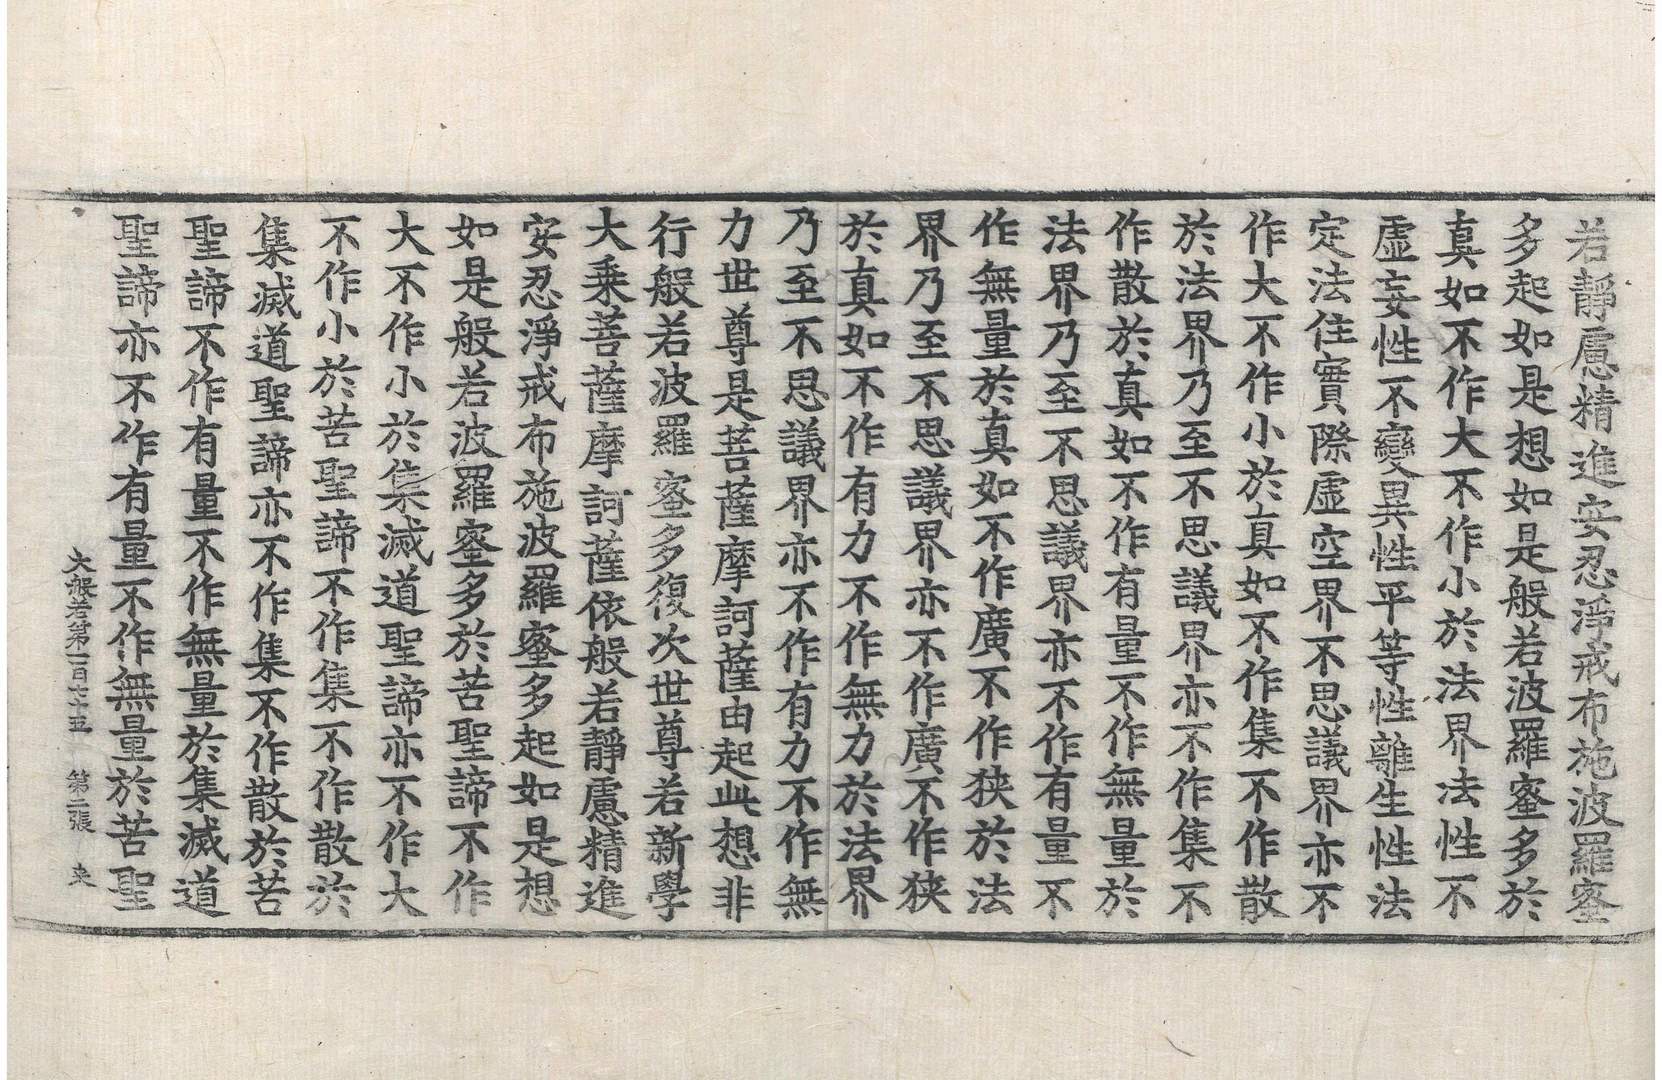 若靜慮精進安忍淨戒布施波羅蜜
多起如是想如是般若波羅蜜多於
真如不作大不作小於法界法性不
虛妄性不變異性平等性離生性法
定法住實際虛空界不思議界亦不
作大不作小於真如不作集不作散
於法界乃至不思議界亦不作集不
作散於真如不作有量不作無量於
法界乃至不思議界亦不作有量不
作無量於真如不作廣不作狹於法
界乃至不思議界亦不作廣不作狹
於真如不作有力不作無力於法界
乃至不思議界亦不作有力不作無
力世尊是菩薩摩訶薩由起此想非
行般若波羅蜜多復次世尊若新學
大乘菩薩摩訶薩依般若靜慮精進
安忍淨戒布施波羅蜜多起如是想
如是般若波羅蜜多於苦聖諦不作
大不作小於集滅道聖諦亦不作大
不作小於苦聖諦不作集不作散於
集滅道聖諦亦不作集不作散於苦
聖諦不作有量不作無量於集滅道
聖諦亦不作有量不作無量於苦聖
大般若第一百七十五 第二張 来